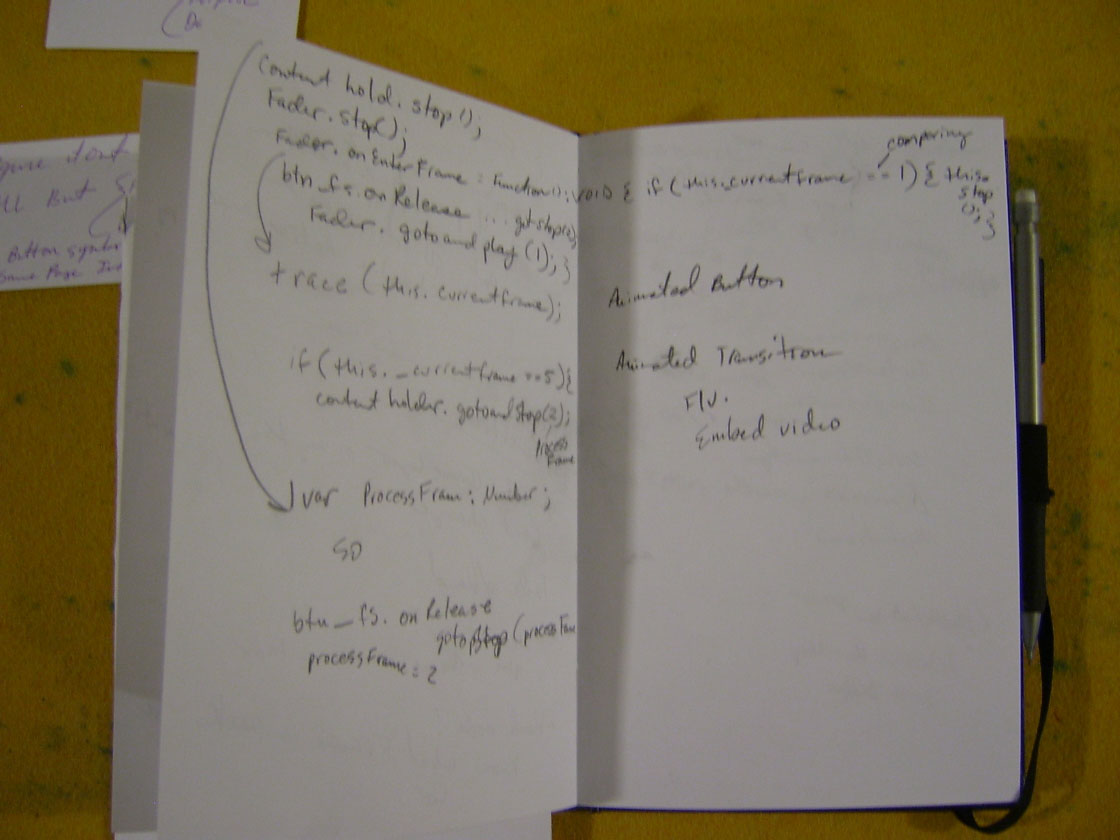 Do
Content hold. stop ();
Fader. stop();
Fader. onEnterFrame = Function():void { if (this._currentframe == 1) { this. stop (); }
comparing
btn_fs. on Release ... gotostop(2);
Fader. gotoandplay (1); }
trace (this. currentframe);
if (this. _currentframe ==5){
content holder. gotoandstop(2);
process Frame
var ProcessFram: Number;
SO
btn_fs. on Release
processFrame = 2
Animated Button
Animated Transition
FlV.
Embed video
But
Button
Same Page